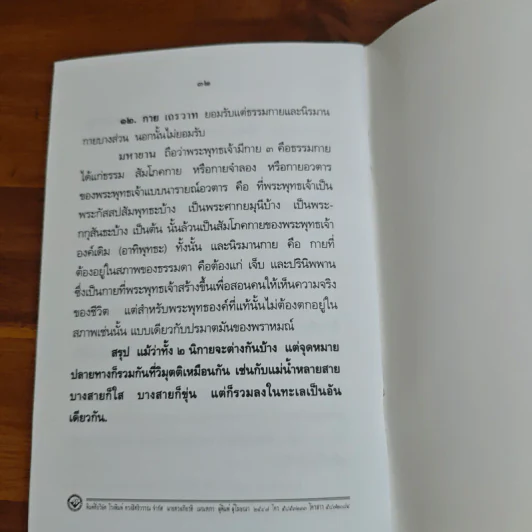 ๓๒
๑๒. กาย เถรวาท ยอมรับแต่ธรรมกายและนิรมาน
กายบางส่วน นอกนั้นไม่ยอมรับ
มหายาน ถือว่าพระพุทธเจ้ามีกาย ๓ คือธรรมกาย
ได้แก่ธรรม สัมโภคกาย หรือกายจำลอง หรือกายอวตาร
ของพระพุทธเจ้าแบบนารายณ์อวตาร คือ ที่พระพุทธเจ้าเป็น
พระกัสสปสัมพุทธะบ้าง เป็นพระศากยมุนีบ้าง เป็นพระ-
กกุสันธะบ้าง เป็นต้น นั้นล้วนเป็นสัมโภคกายของพระพุทธเจ้า
องค์เดิม (อาทิพุทธะ) ทั้งนั้น และนิรมานกาย คือ กายที่
ต้องอยู่ในสภาพของธรรมดา คือต้องแก่ เจ็บ และปรินิพพาน
ซึ่งเป็นกายที่พระพุทธเจ้าสร้างขึ้นเพื่อสอนคนให้เห็นความจริง
ของชีวิต แต่สำหรับพระพุทธองค์ที่แท้นั้นไม่ต้องตกอยู่ใน
สภาพเช่นนั้น แบบเดียวกับปรมาตมันของพราหมณ์
สรุป แม้ว่าทั้ง ๒ นิกายจะต่างกันบ้าง แต่จุดหมาย
ปลายทางก็รวมกันที่วิมุตติเหมือนกัน เช่นกับแม่น้ำหลายสาย
บางสายก็ใส บางสายก็ขุ่น แต่ก็รวมลงในทะเลเป็นอัน
เดียวกัน.